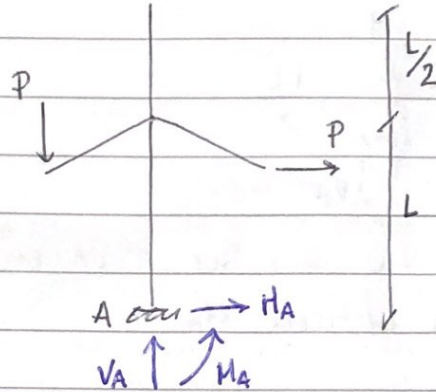 L/2
P
P
L
A
H_A
V_A
M_A